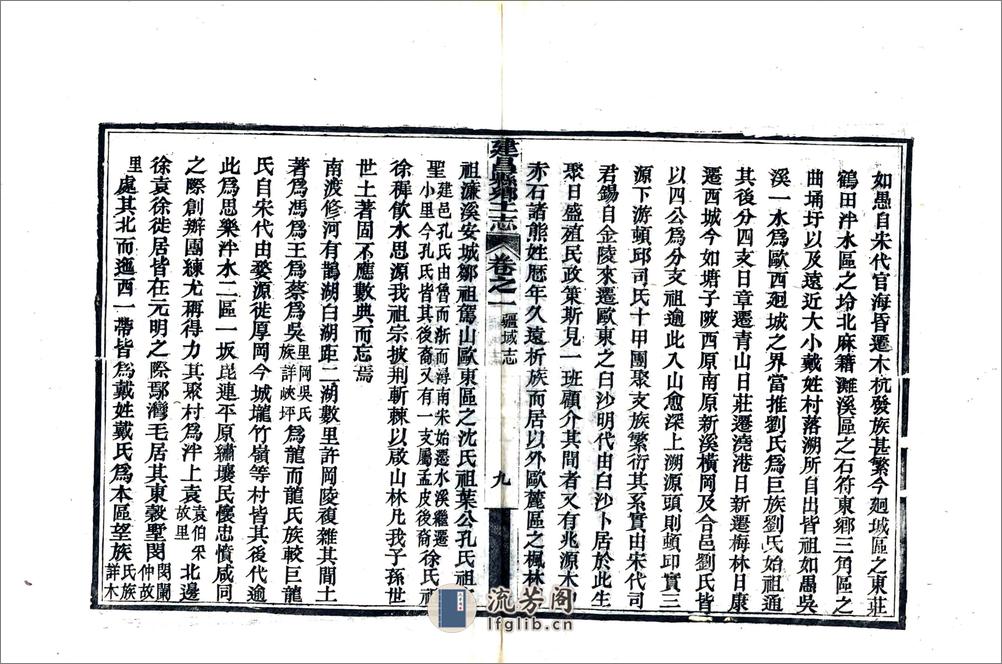 如愚自宋代官海昏遷木杭發族甚繁今迴城區之東莊
鶴田泮水區之坽北麻籍灘溪區之石符東鄉三角區之
曲埇圩以及遠近大小戴姓村落溯所自出皆祖如愚吳
溪一水爲歐西迴城之界當推劉氏爲巨族劉氏始祖通
其後分四支日章遷青山日莊遷澆港日新遷梅林日康
遷西城今如塘子陂西原南原新溪橫岡及合邑劉氏皆
以四公爲分支祖逾此入山愈深上溯源頭則頓印實三
源下游頓邱司氏十甲團聚支族繁衍其系實由宋代司
君錫自金陵來遷歐東之白沙明代由白沙卜居於此生
聚日盛殖民政策斯見一班顧介其間者又有兆源木山
赤石諸熊姓歷年久遠析族而居以外歐麓區之楓林
建昌縣鄉土志 卷之一 疆域志 九
祖濂溪安城鄒祖駕山歐東區之沈氏祖葉公孔氏祖
聖建邑孔氏由魯而浙而潯南宋始遷水溪繼遷小里今孔氏皆其後裔又有一支屬孟皮後裔徐氏祖
徐穉飲水思源我祖宗披荆斬棘以啟山林凡我子孫世
世土著固不應數典而忘焉
南渡修河有鵲湖白湖距二湖數里許岡陵複雜其間土
著爲馮爲王爲蔡爲吳里岡吳氏族詳峽坪爲龍而龍氏族較巨龍
氏自宋代由婺源徙厚岡今城壠竹嶺等村皆其後代逾
此爲思樂泮水二區一坂毘連平原繡壤民懷忠憤咸同
之際創辦團練尤稱得力其聚村爲泮上袁袁伯采故里北邊
徐袁徐徙居皆在元明之際鄢灣毛居其東穀墅閔閔闌仲故
里處其北而迤西一帶皆爲戴姓戴氏爲本區望族氏族詳木
流芳閣
lfglib.cn